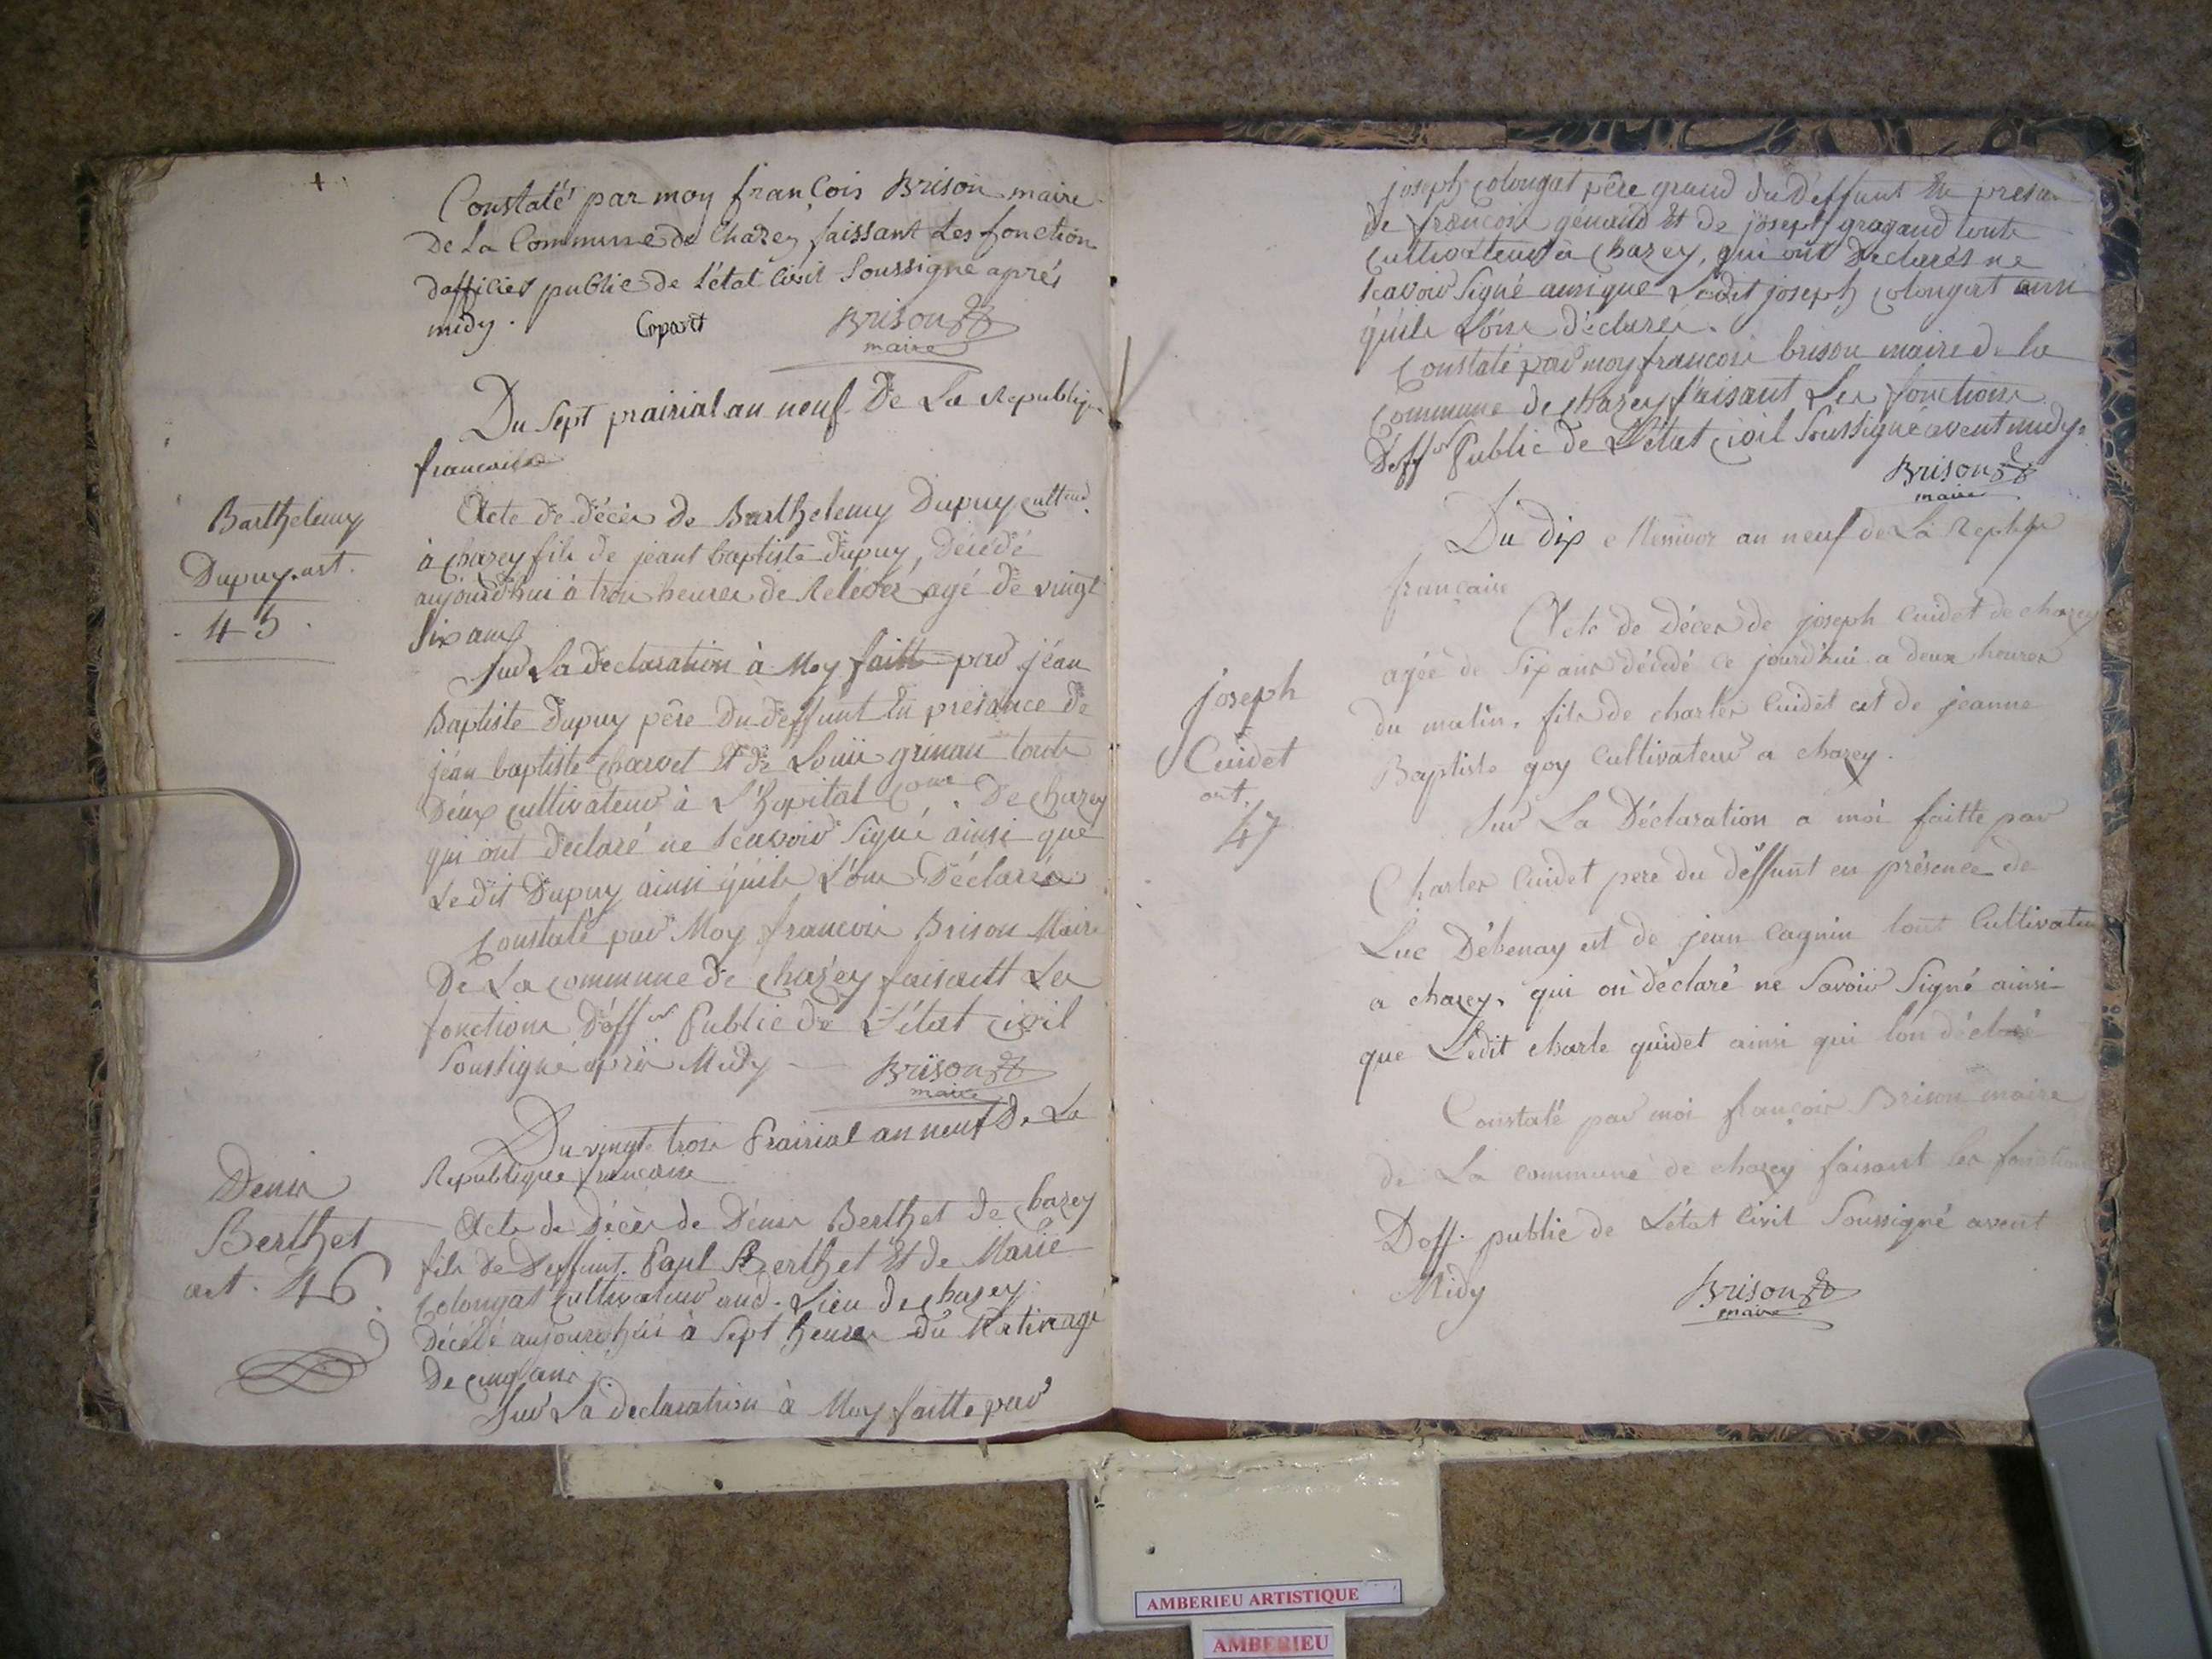 Constaté par moy françois Brison maire
De La Commune de Chazey faissant Les fonction
dofficier public de L'état Civil Soussigné aprés
midy. Copart Brison
maire
Du Sept prairial an neuf De La Republique
francaise
Barthelemy
Dupuy. art.
45
Acte de décès de Barthelemy Dupuy culteur
à chazey fils de jeant baptiste dupuy, Décédé
aujourdhui à trois heures de Relevée, agé de vingt
six ans
Sur La declaration à Moy faitte par jéan
Baptiste Dupuy pére Du deffunt En présance de
jéan baptiste charvet Et de Louis grinan touts
Déux cultivateur à L'hopital Coune. De Chazey
qui ont déclaré ne Scavoir Signé ainsi que
Le dit Dupuy ainsi qúils L'ons Déclarés
Constaté par Moy francois Brison Maire
De La commune de chazey faisantt Les
fonctions D'offer Public de L'état Civil
Soussigné aprés Midy Brison
maire
Du vingt trois Prairial an neuf De La
Republique francaise
Denis
Berthet
art. 46
Acte de Décès de Dénis Berthet de Chazey
fils de Deffunt. Paul Berthet Et de Marie
Colongat Cultivateur aud. Lieu de chazey
Décédé aujourdhui à Sept heures du Matin agé
De cinq ans
Sur La declaration à Moy faitte par
joseph colongat pére grand du déffunt En présa
de françois genaud Et de joseph gragaud touts
Cultivateur à Chazey, qui ont Declarés ne
Scavoir Signé ainsi que Ledit joseph colongat ainsi
qúils L'ons déclarés.
Constaté par moy francois brison maire de la
commune de chazey faisant Les fonctions
D'offer Public de L'état Civil Soussigné avent midy.
Brison
maire
Du dix Messidor an neuf de La Repbque
française
joseph
Cuidet
art.
47
Acte de Décès de joseph Cuidet de chazey
agée de Six ans décédé ce jourd'hui a deux heures
du matin. fils de charles Cuidet et de jeanne
Baptiste goy Cultivateur a chazey.
Sur La Déclaration a moi faitte par
Charles Cuidet pere du déffunt en présence de
Luc Débenay et de jean Cagnin tout Cultivateur
a chazey. qui on déclaré ne Savoir Signé ainsi
que Ledit charle quidet ainsi qui lon déclaré
Constaté par moi françois Brison maire
de La commune de chazey faisant les fonction
Doff. public de L'état Civil Soussigné avent
Midy Brison
maire
AMBERIEU ARTISTIQUE
AMBERIEU